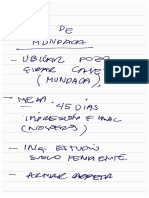 DE
MUNDACA
- UBICAR POZO
GIRAR CAMET
(MUNDACA)
- MECA. 45 DIAS
IMPRESIÓN FINAL
(NOSOTROS)
- ING. ESTUDIO
SUELO PENDIENTE.
- ARMAR CARPETA